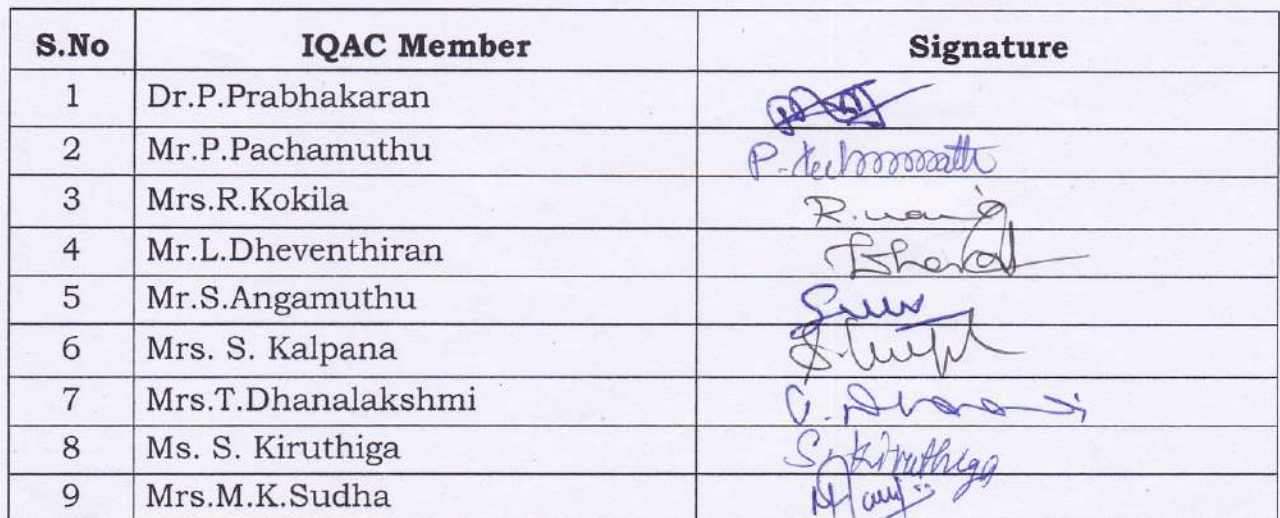 S.No IQAC Member Signature
1 Dr.P.Prabhakaran
2 Mr.P.Pachamuthu
3 Mrs.R.Kokila
4 Mr.L.Dheventhiran
5 Mr.S.Angamuthu
6 Mrs. S. Kalpana
7 Mrs.T.Dhanalakshmi
8 Ms. S. Kiruthiga S. Kiruthiga
9 Mrs.M.K.Sudha